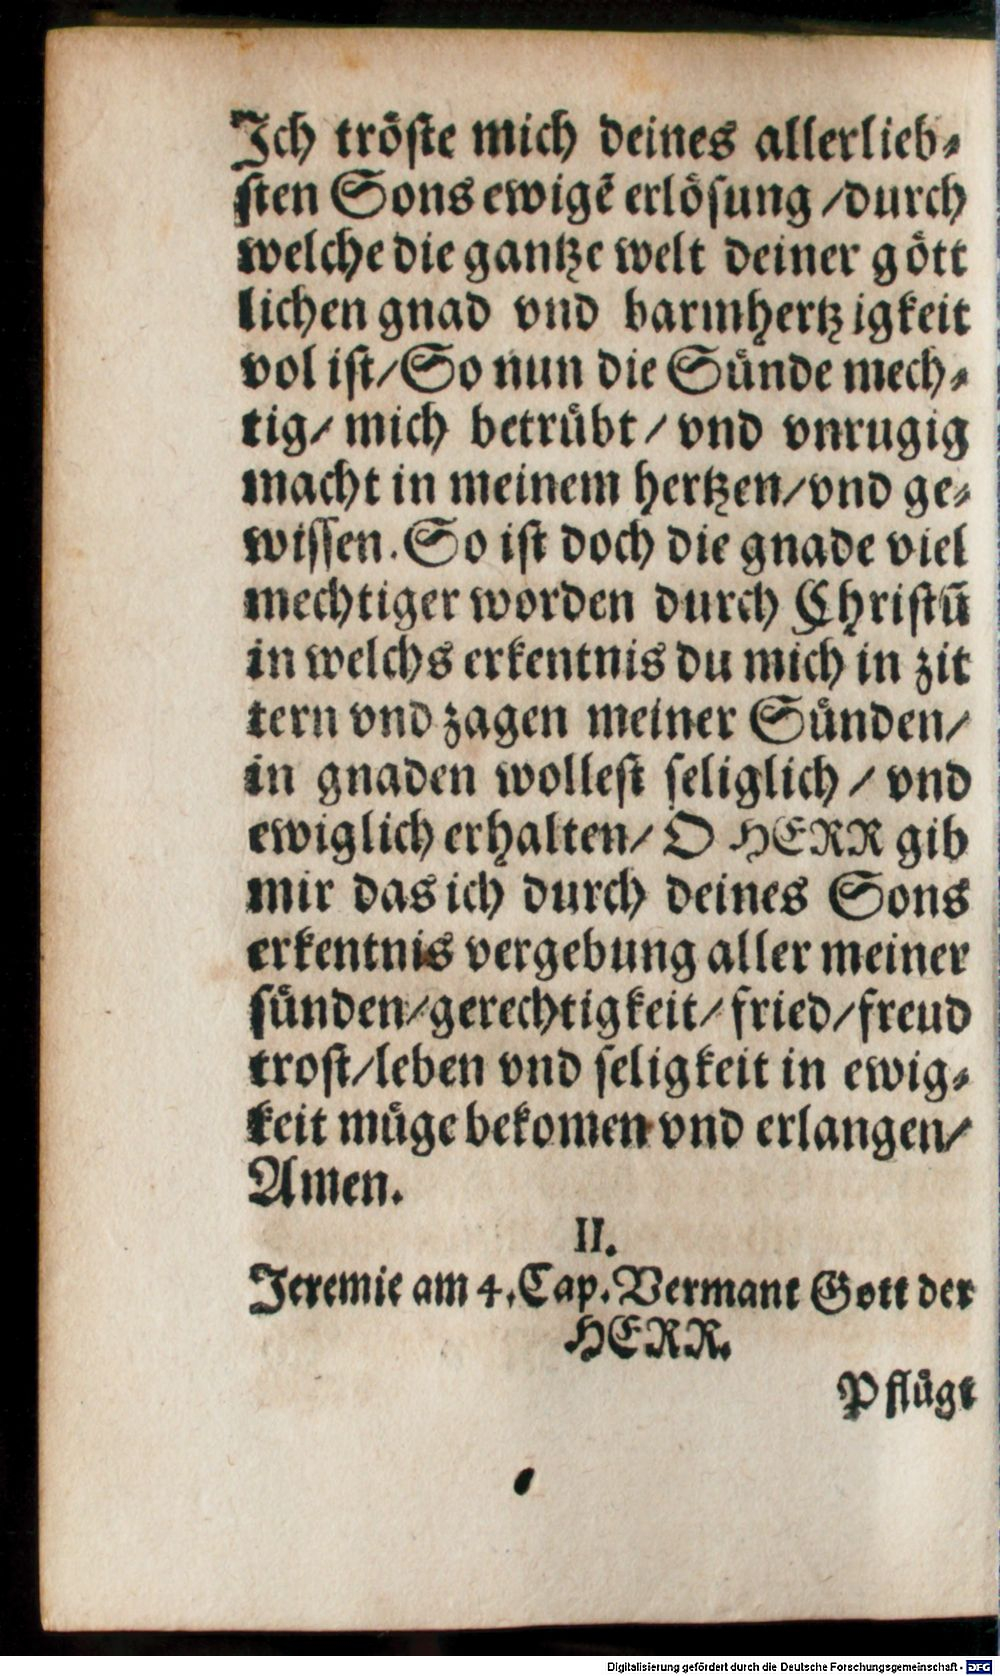 Ich tröste mich deines allerlieb⸗
sten Sons ewigẽ erlösung /durch
welche die gantze welt deiner gött
lichen gnad vnd barmhertzigkeit
vol ist/So nun die Sünde mech⸗
tig/ mich betrübt / vnd vnrugig
macht in meinem hertzen/vnd ge⸗
wissen. So ist doch die gnade viel
mechtiger worden durch Christũ
in welchs erkentnis du mich in zit
tern vnd zagen meiner Sünden/
in gnaden wollest seliglich / vnd
ewiglich erhalten/ O HERR gib
mir das ich durch deines Sons
erkentnis vergebung aller meiner
sünden/gerechtigkeit/ fried/freud
trost/leben vnd seligkeit in ewig⸗
keit müge bekomen vnd erlangen/
Amen.
II.
Jeremie am 4. Cap. Vermant Gott der
HERR.
Pflügt
Digitalisierung gefördert durch die Deutsche Forschungsgemeinschaft - DFG